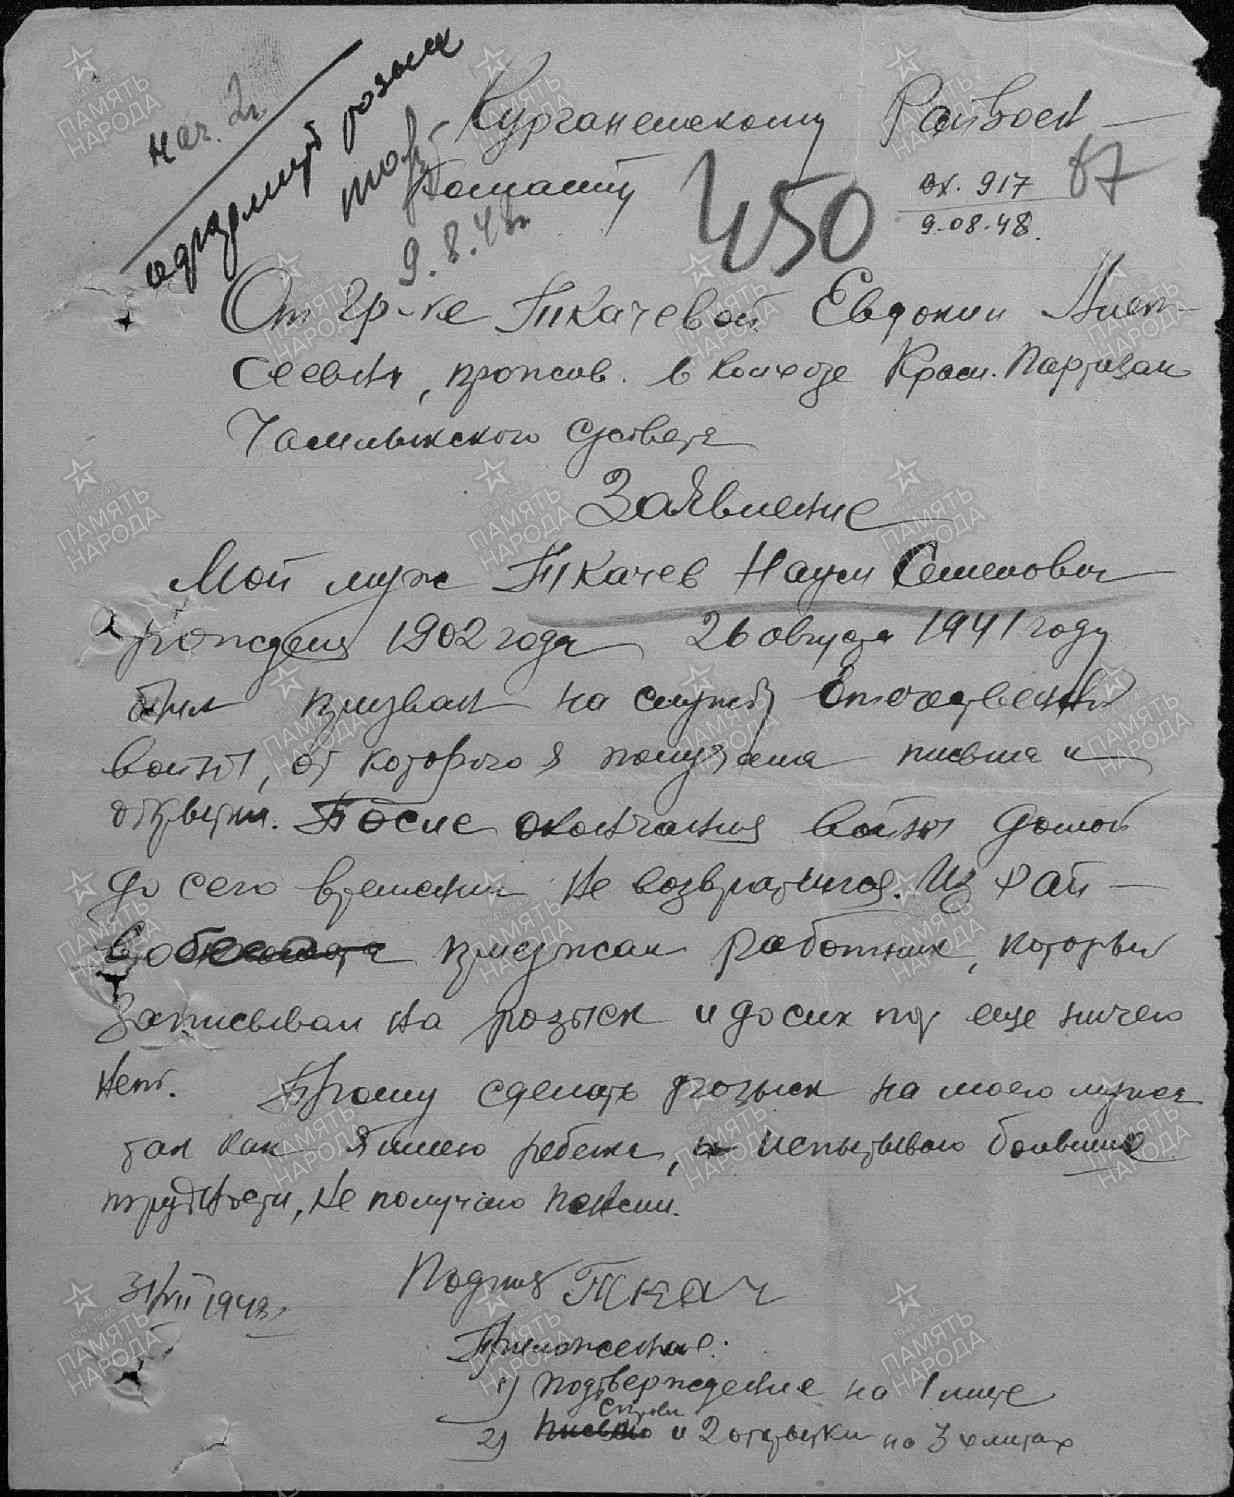 нач. 2ч.
оформить розыск
9.8.48
Курганенскому Райвоен-
комату
450
вх. 917
9.08.48.
67
От гр-ке Ткачевой Евдокии Алек-
сеевны, прожив. в колхозе Красн. Партизан
Чамлыкского с/совета
Заявление
Мой муж Ткачев Наум Семенович
рождения 1902 года 26 августа 1941 году
был призван на службу Отечественой
войны, от которого я получала письма и
открытки. После окончания войны домой
до сего времени не возвратился. Из рай-
приезжал работник, который
записывал на розыск и до сих пор еще ничего
нет. Прошу сделать розыск на моего мужа
так как я имею ребенк, и испытываю большие
трудности, не получаю пенсии.
31/VII 1948г.
Подпись Ткач
Приложение:
1) Подтверждение на 1 листе
2) письмо и 2 открытки на 3х листах
ПАМЯТЬ НАРОДА